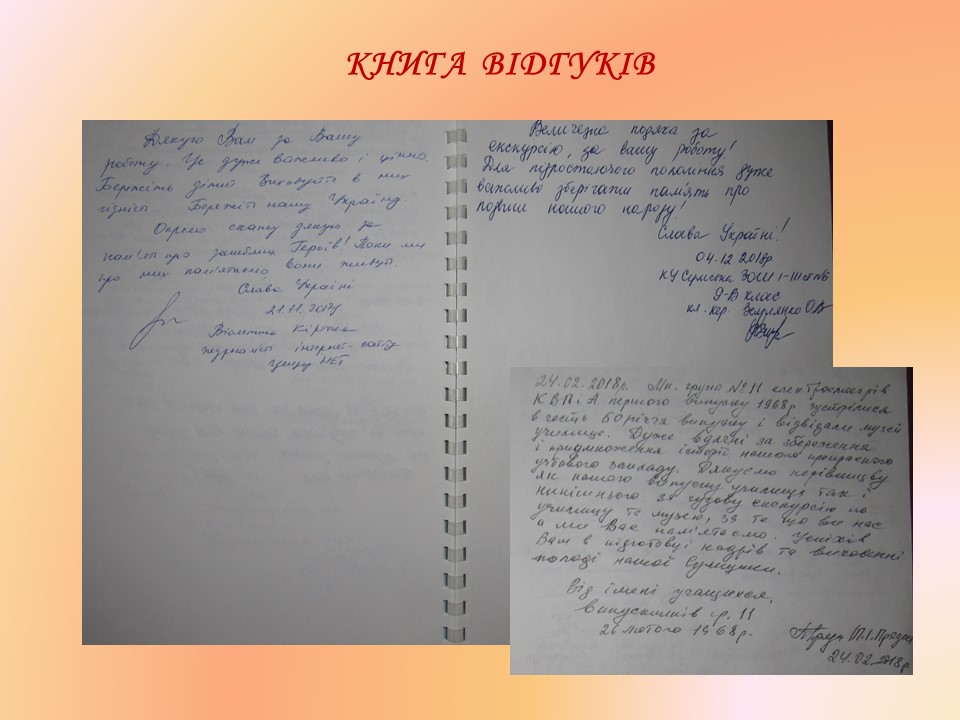 КНИГА ВІДГУКІВ
Дякую Вам за Вашу
роботу. Це дуже важливо і цінно.
Бережіть дітей Виховуйте в них
гідність Бережіть нашу Україну.
Окремо скажу дякую за
пам'ять про загиблих Героїв! Поки ми
про них пам'ятаємо, вони живуть.
Слава Україні
21.11.
Віолетта
журналіст інтернет-сайту
Величезна подяка за
екскурсію, за вашу роботу!
Для підростаючого покоління дуже
важливо зберігати пам'ять про
подвиги нашого народу!
Слава Україні!
04.12.2018р.
КУ Сумська ЗОШ І-ІІІ ст №6
9-В клас
кл. кер. О.В.
24.02.2018р. Ми. група №11 електрослюсарів
КВПіА першого випуску 1968р зустрілися
в честь 50 річчя випуску і відвідали музей
училище. Дуже вдячні за збереження
і примноження історії нашого прекрасного
учбового закладу. Дякуємо керівництву
як нашого випуску училища так і
нинішнього за чудову екскурсію по
училищу та музею, за те що все нас
а ми Вас пам'ятаємо. Успіхів
Вам в підготовці кадрів та вихованні
молоді нашої Сумщини.
Від імені учащихся,
випускників гр. 11
26 лютого 1968р.
24.02.2018р